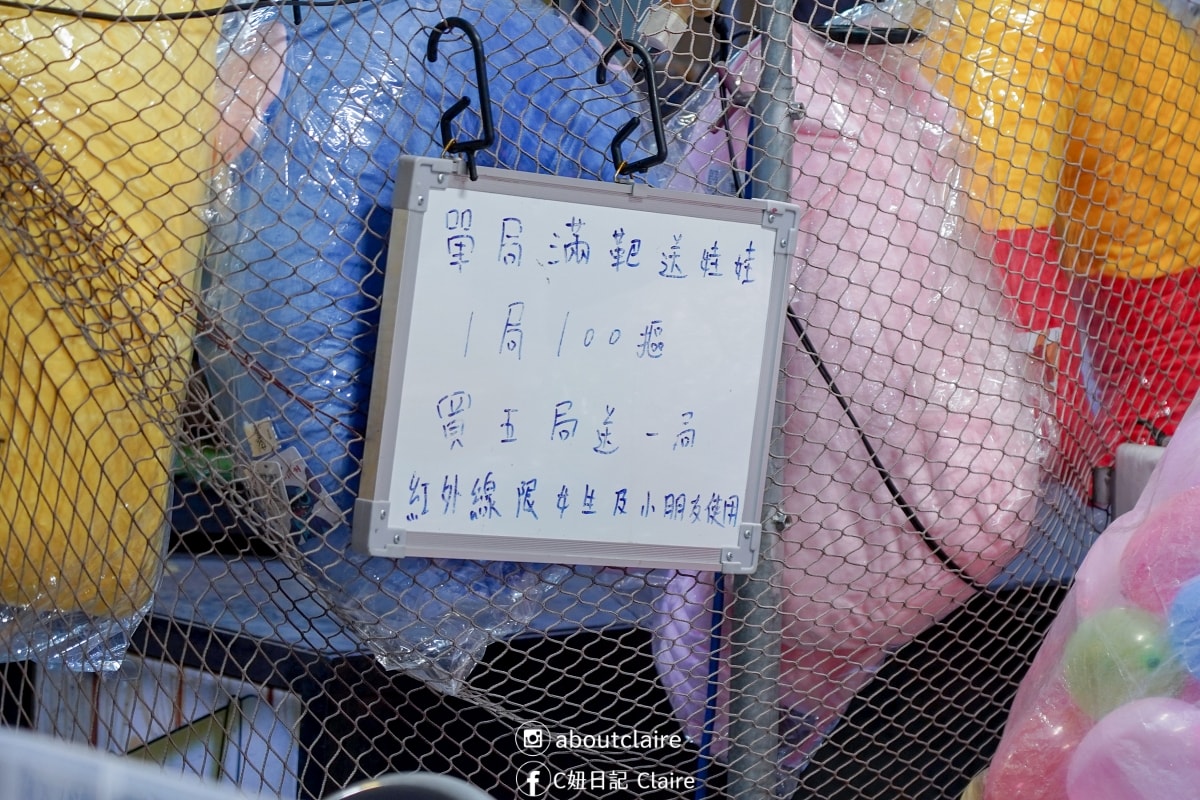 單局滿靶送娃娃
1局100摳
買五局送一局
紅外線限女生及小朋友使用
aboutclaire
C妞日記 Claire